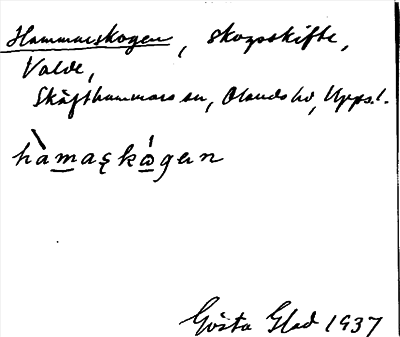 Hammarskogen, skogsskifte,
Valde,
Skäfthammars sn, Olands hd, Upps.l.
hàmaskógen
Gösta Glad 1937